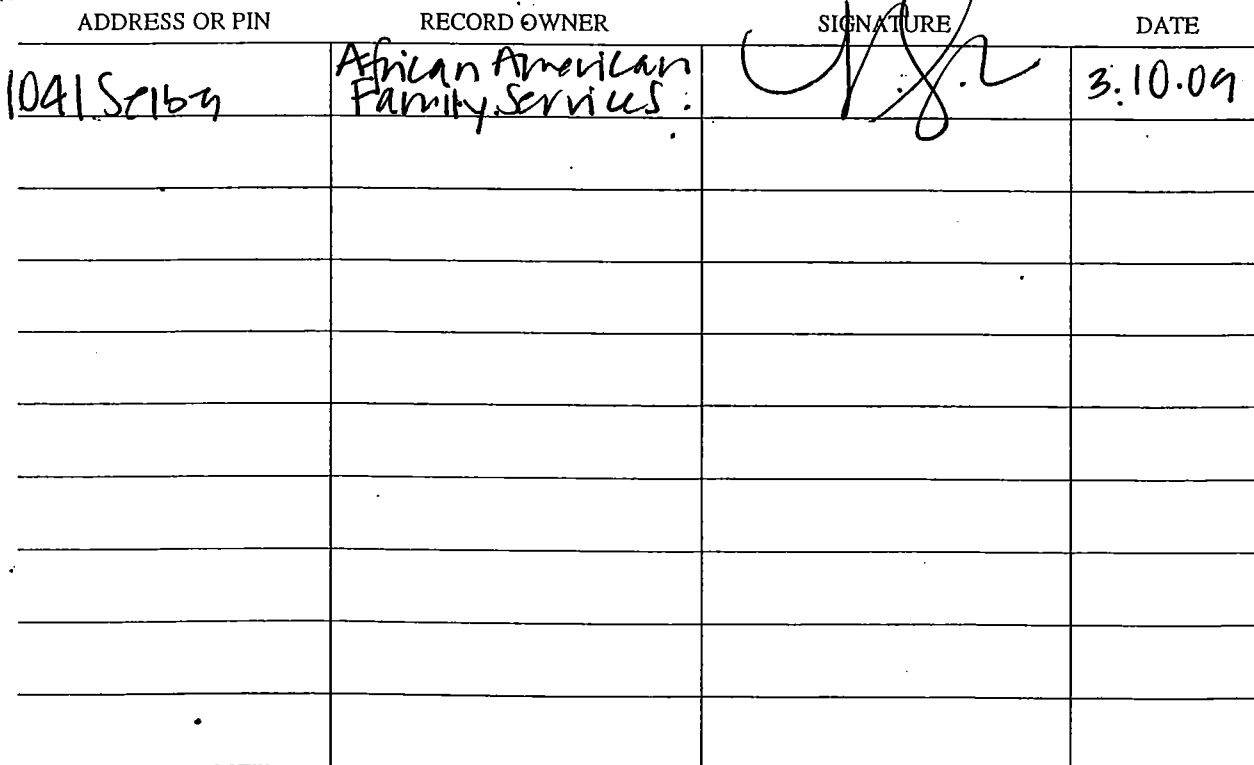 ADDRESS OR PIN RECORD OWNER SIGNATURE DATE
1041 Selby African American Family Services 3.10.09